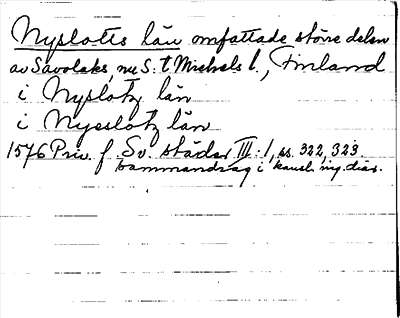 Nyslotts län omfattade större delen
av Savolaks nu S. t Michels l., Finland
i Nyslotz län
i Nyeslotz län
1576 Priv. f. Sv. städer III:1, ss. 322, 323
sammandrag i kansl. ing. diar.